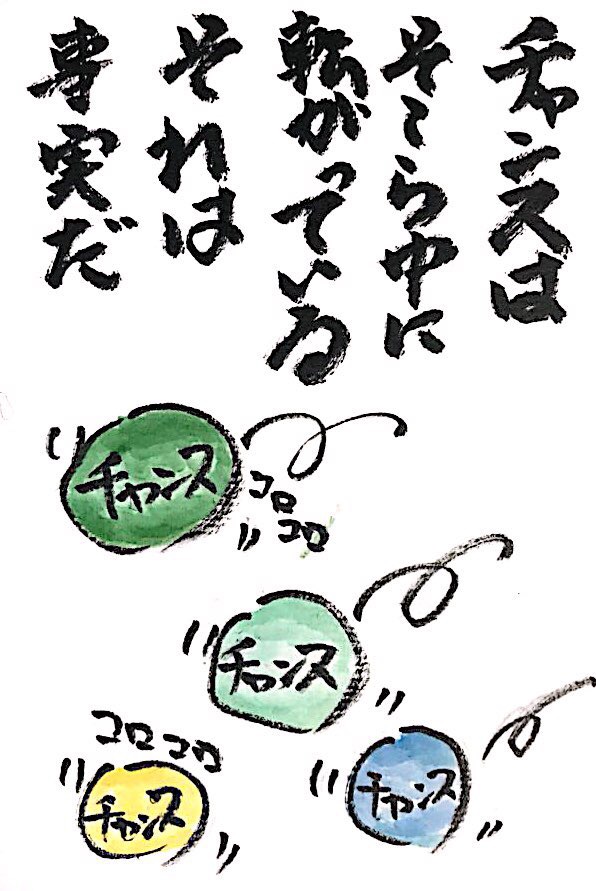 チャンスは
そこら中に
転がっている
それは
事実だ
チャンス
コロ
コロ
チャンス
コロコロ
チャンス
チャンス